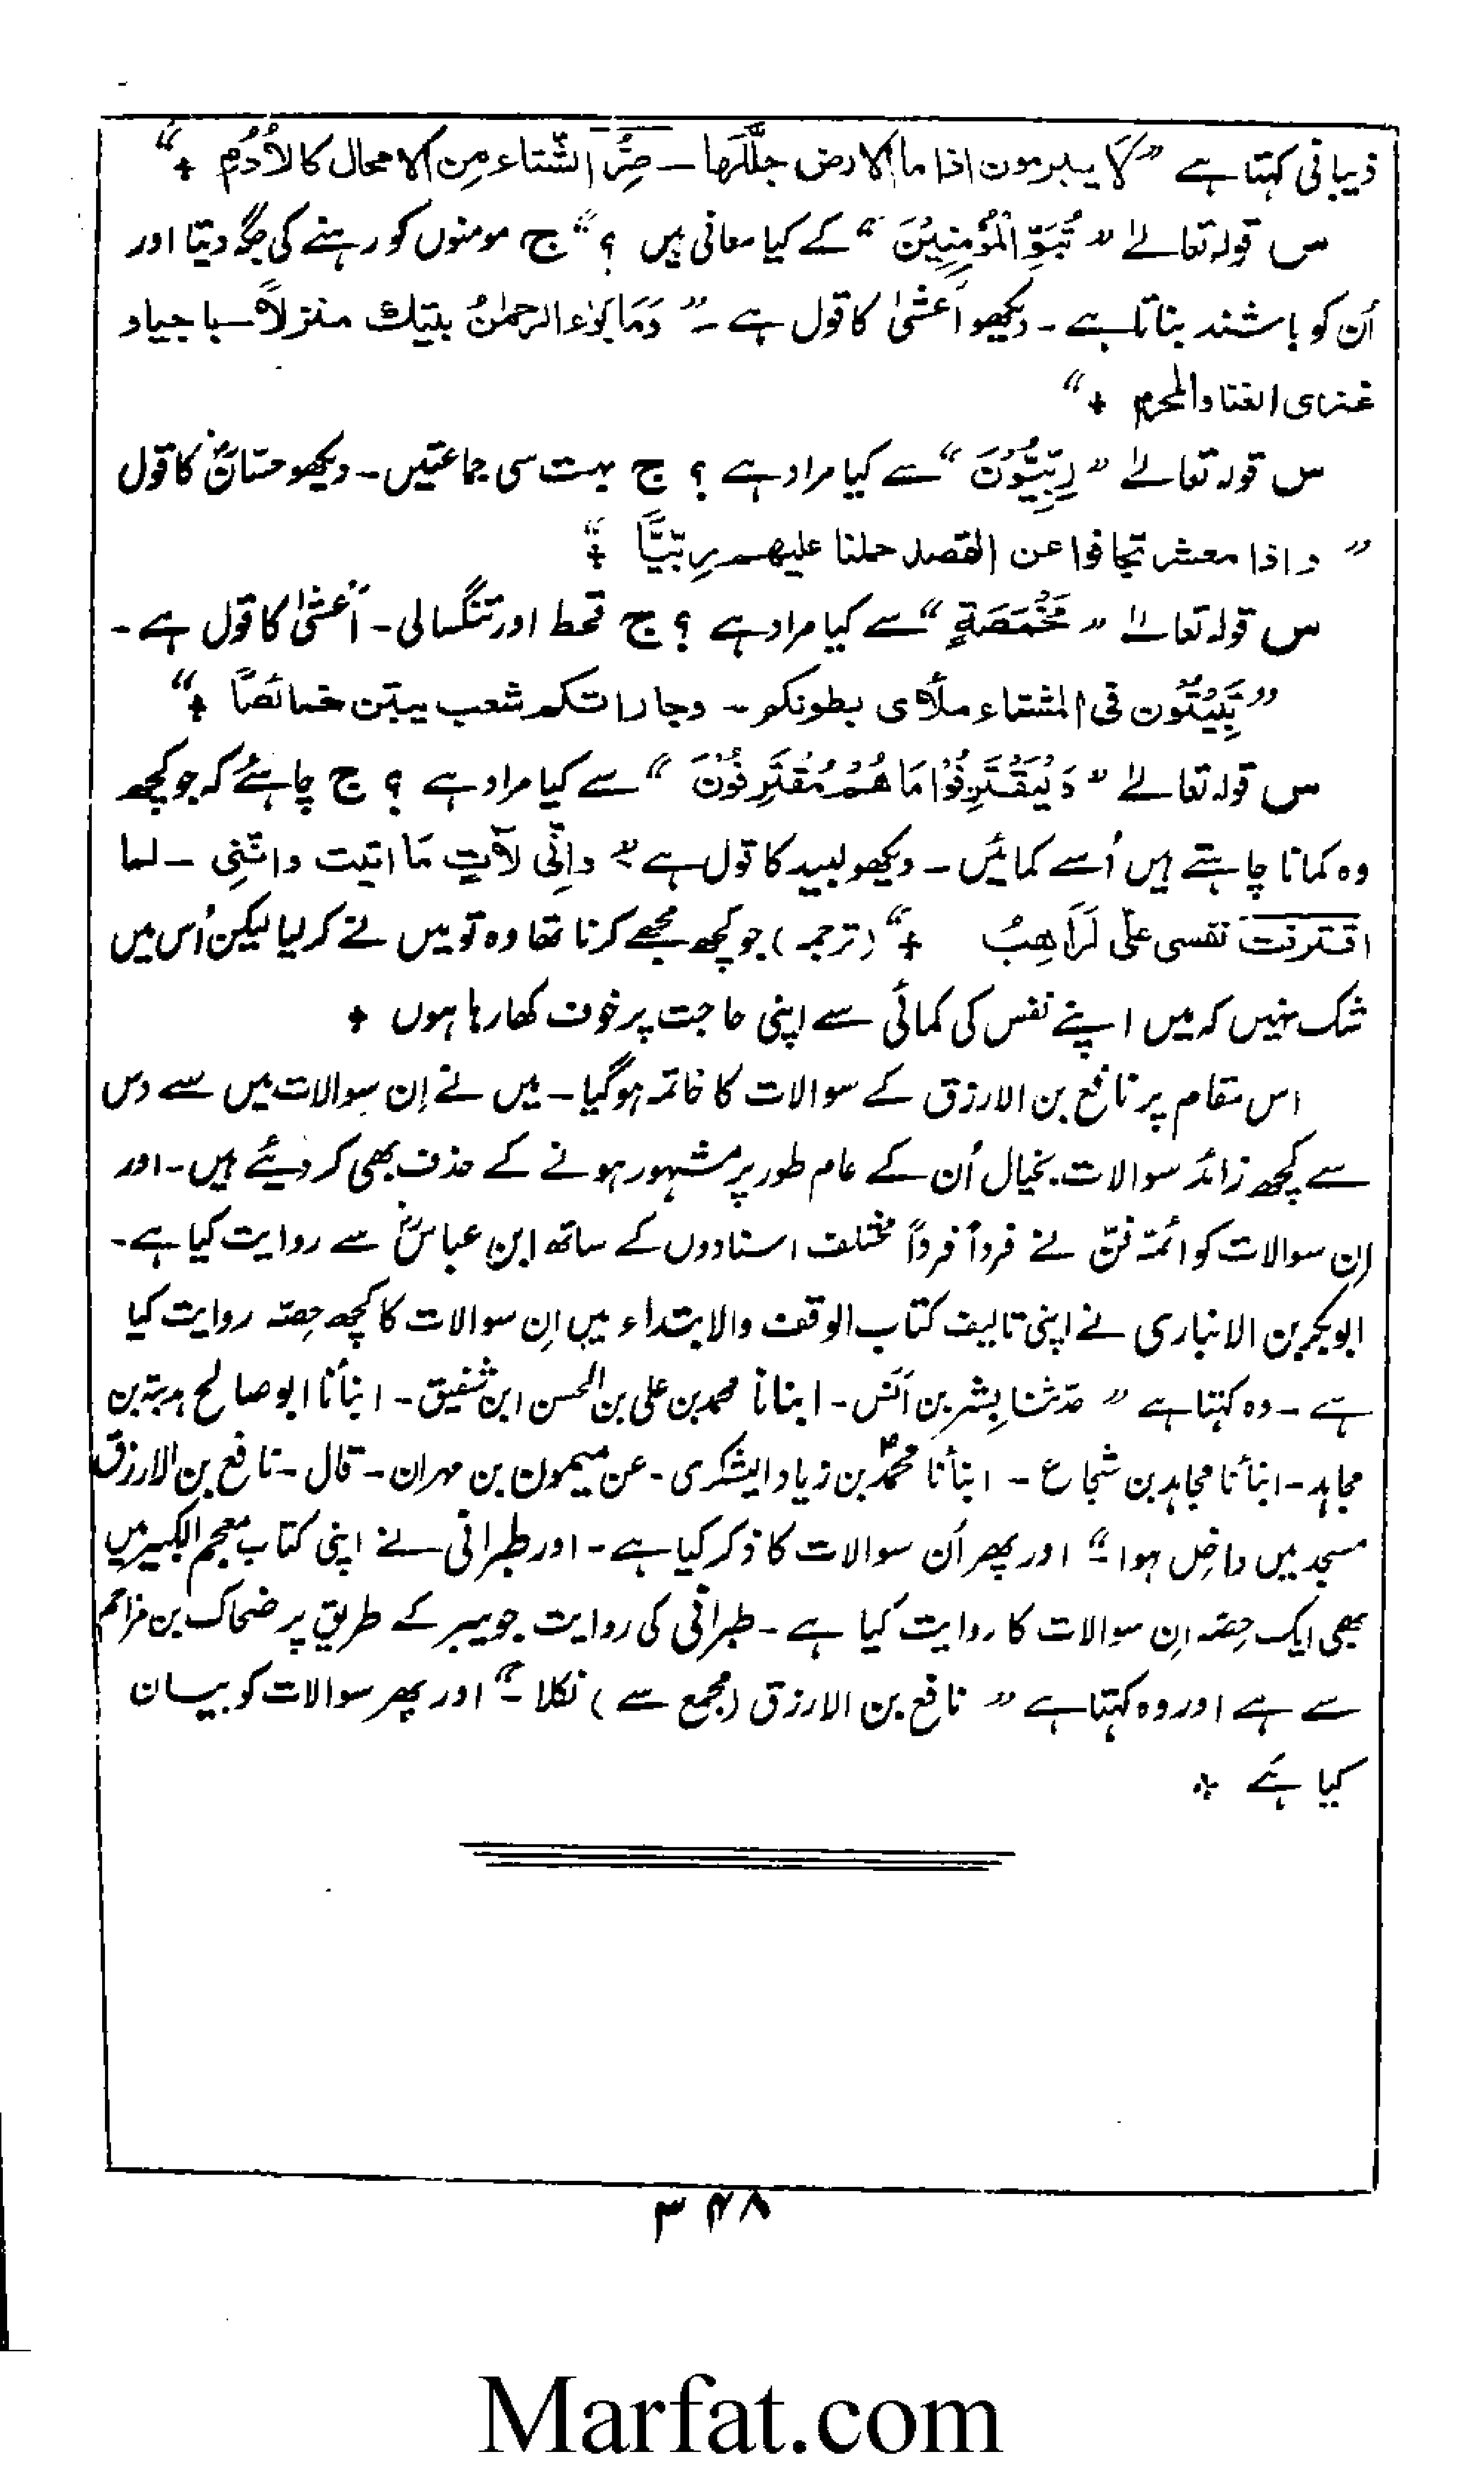 ذیبانی کہتا ہے ”لَا یبرمون اذا ما الارض جلَّلَہا – صِرُّ الشّتاء مِن الامحال کالاُدُم “ +
س قولہ تعالےٰ ” تُبَوِّ الْمُؤْمِنِیْنَ “ کے کیا معانی ہیں ؟ “ ج مومنوں کو رہنے کی جگہ دیتا اور
اُن کو باشند بناتا ہے ۔ دیکھو اَعشیٰ کا قول ہے ۔ ” وَمَا بَوّاء الرحمٰنُ بیتك منزلاً باجیاد
غربی الفنا والمحرم + “
س قولہ تعالےٰ ” رِبِّیُّوْنَ “ سے کیا مراد ہے ؟ ج بہت سی جماعتیں ۔ دیکھو حسّانؓ کا قول
” واذا معشر تجافوا عن القصد حملنا علیھم رِبِّیًّا “ +
س قولہ تعالےٰ ” مَخْمَصَةٍ “ سے کیا مراد ہے ؟ ج قحط اور تنگسالی ۔ اَعشیٰ کا قول ہے ۔
” تَبِیْتُوْن فی المشتاء ملأی بطونکم – وجاراتکم شعب یبتن خمائصاً + “
س قولہ تعالےٰ ” وَلْیَقْتَرِفُوْا مَا هُمْ مُقْتَرِفُوْنَ “ سے کیا مراد ہے ؟ ج چاہئے کہ جو کچھ
وہ کمانا چاہتے ہیں اُسے کمائیں ۔ دیکھو لبید کا قول ہے ” وانِّی لآتٍ مَا اتیت وانّنِی – لما
اقترفت نفسی علیّ لَرَاهِبُ + “ (ترجمہ) جو کچھ مجھے کرنا تھا وہ تو میں نے کر لیا لیکن اُس میں
شک نہیں کہ میں اپنے نفس کی کمائی سے اپنی حاجت پر خوف کھا رہا ہوں +
اس مقام پر نافع بن الارزق کے سوالات کا خاتمہ ہوگیا ۔ میں نے اِن سوالات میں سے دس
سے کچھ زائد سوالات بخیال اُن کے عام طور پر مشہور ہونے کے حذف بھی کر دیئے ہیں ۔ اور
اِن سوالات کو ائمۂ فنّ نے فرداً فرداً مختلف اسنادوں کے ساتھ ابن عباسؓ سے روایت کیا ہے ۔
ابوبکر بن الانباری نے اپنی تالیف کتاب الوقف والابتداء میں اِن سوالات کا کچھ حِصّہ روایت کیا
ہے ۔ وہ کہتا ہے ” حدّثنا بِشر بن اَنس ۔ ابنانا محمد بن علی بن الحسن ابن شفیق ۔ انبأنا ابو صالح ہدبۃ بن
مجاہد ۔ انبأنا مجاہد بن شجاع ۔ انبأنا محمدؐ بن زیاد الیشکری ۔ عن میمون بن مہران ۔ قال ۔ نافع بن الارزق
مسجد میں داخِل ہوا ۔ “ اور پھر اُن سوالات کا ذکر کیا ہے ۔ اور طبرانی نے اپنی کتاب معجم الکبیر میں
بھی ایک حِصّہ اِن سوالات کا روایت کیا ہے ۔ طبرانی کی روایت جویبر کے طریق پر ضحاک بن مزاحم
سے ہے اور وہ کہتا ہے ” نافع بن الارزق (مجمع سے) نکلا ۔ “ اور پھر سوالات کو بیان
کیا ہے +
۳۴۸
Marfat.com